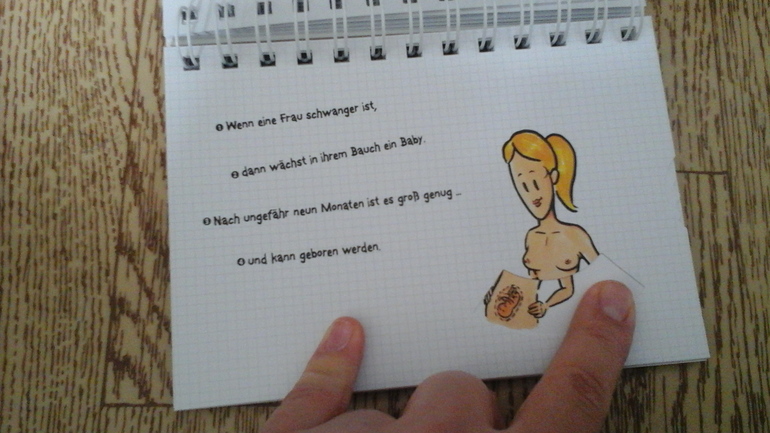 ❶ Wenn eine Frau schwanger ist,
❷ dann wächst in ihrem Bauch ein Baby.
❸ Nach ungefähr neun Monaten ist es groß genug ...
❹ und kann geboren werden.